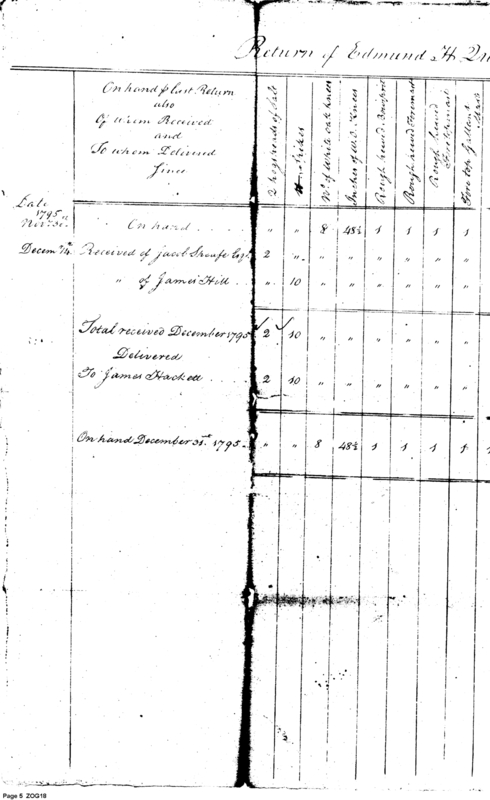 Return of Edmund H. Qu
On hand pr Last Return
also
Of Whom Received
and
To whom Delivered
Since
Hogsheads of Salt
Strikes
No. of White oak knees
Inches of W.O. Knees
Rough hew'd Bowsprit
Rough hewd Foremast
Rough hewed
Fore top Gallant
Date
1795
On hand " " 8 48½ 1 1 1 1
Decemr. 14. Received of Jacob Sheafe Esqr. 2 " " " " " " "
" of James Hill " 10 " " " " " "
Total received December 1795 2 10 " " " " " "
Delivered
To James Hackett 2 10 " " " " " "
On hand December 31st. 1795 " " 8 48½ 1 1 1 1
Page 5 ZOG18